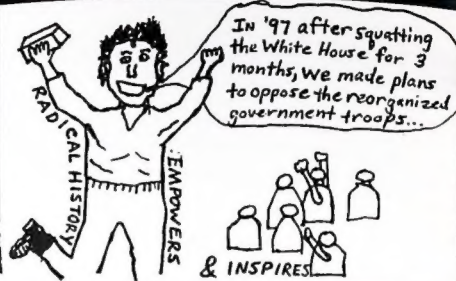 In '97 after squatting
the White House for 3
months, we made plans
to oppose the reorganized
government troops...
RADICAL HISTORY
:EMPOWERS
& INSPIRES